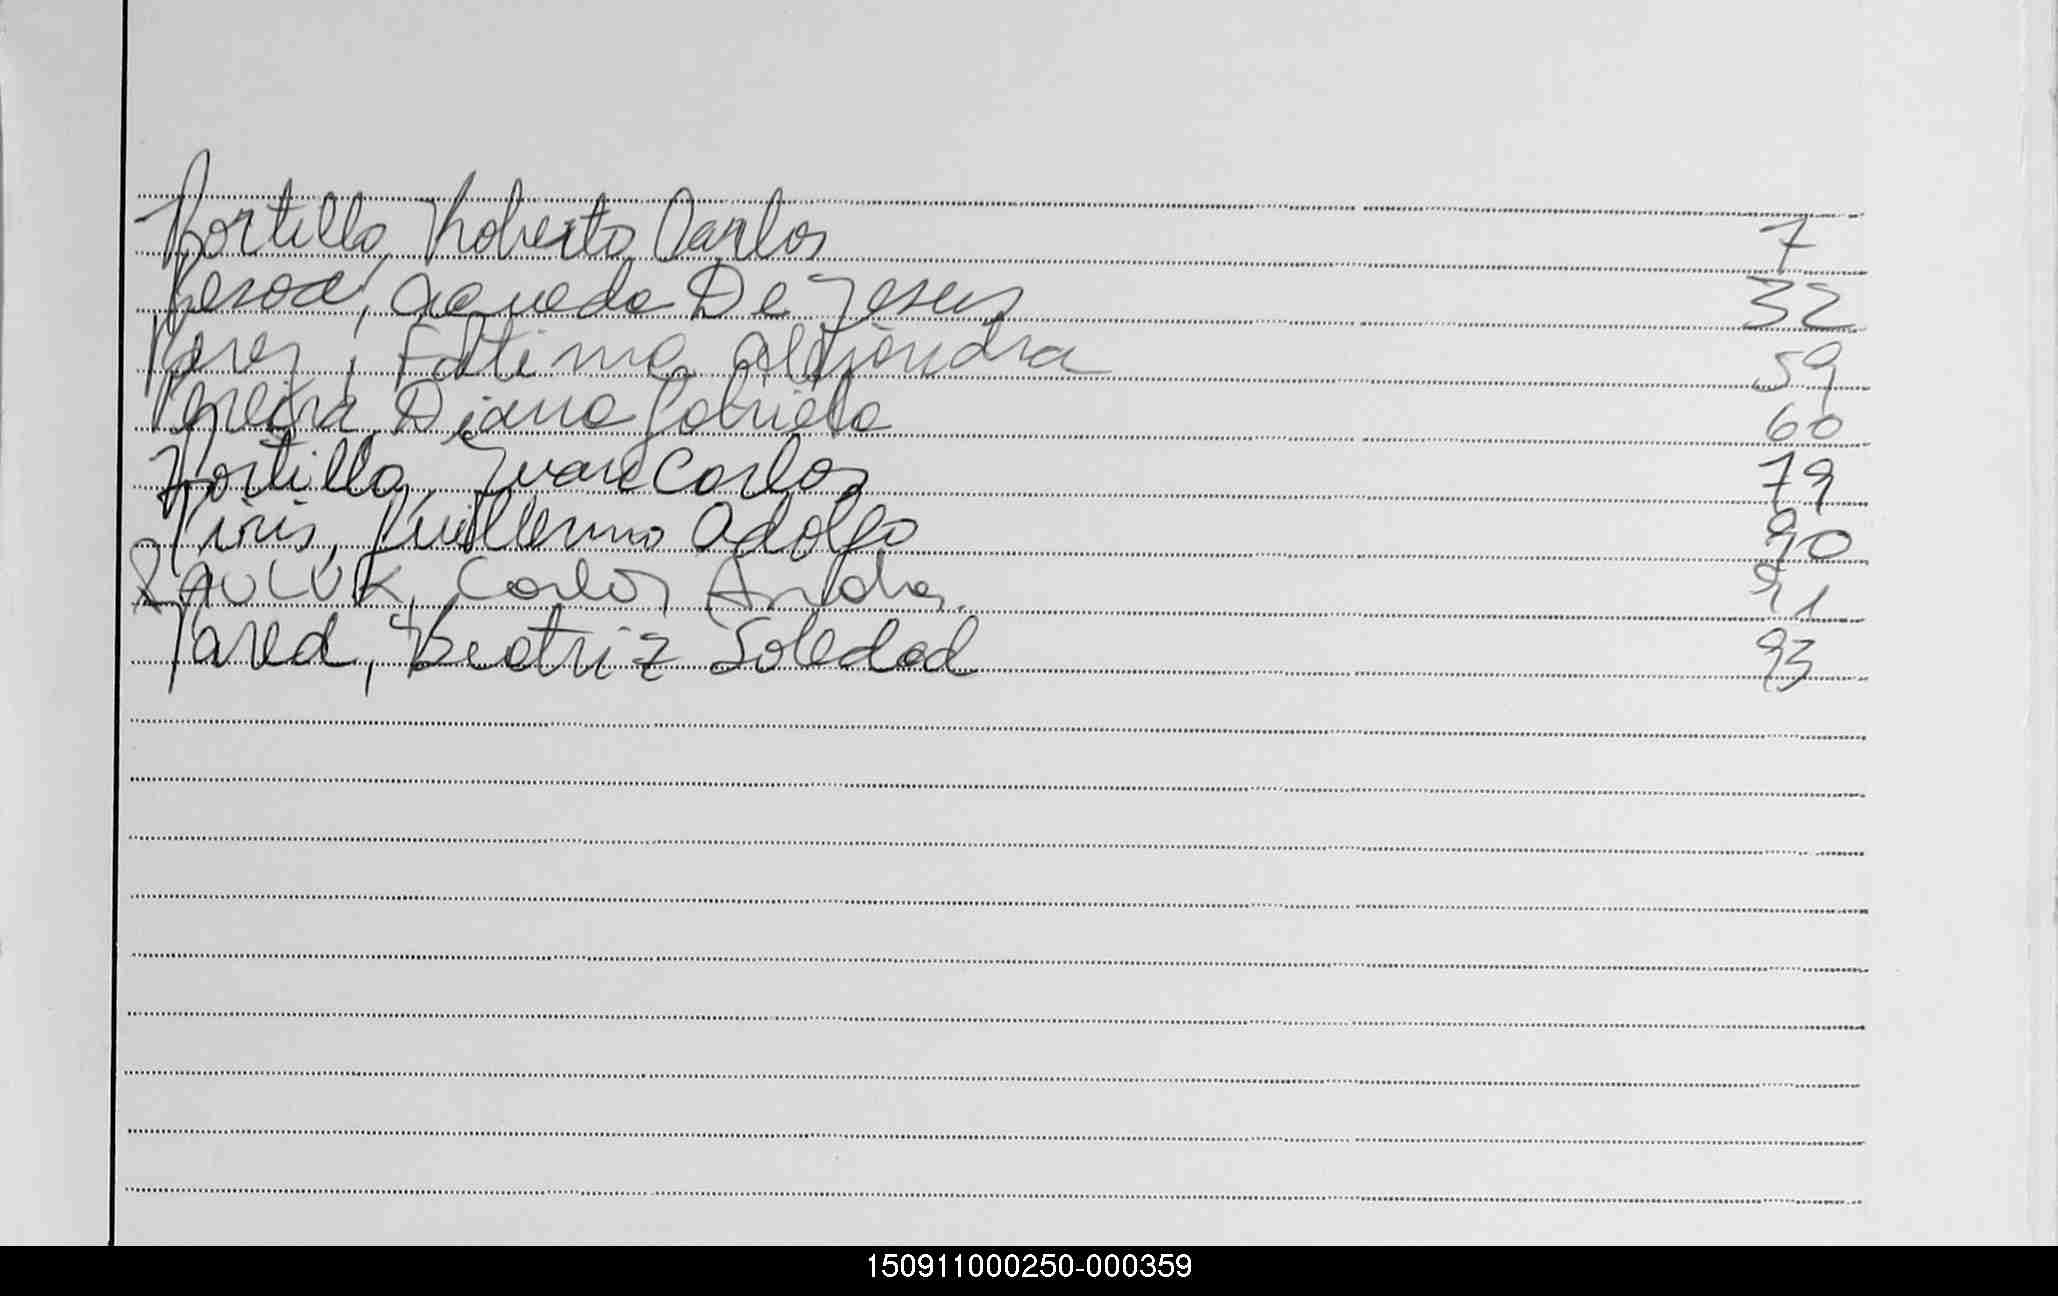 Portillo, Roberto Carlos 7
Peroa, Agueda De Jesus 32
Perez, Fatima Alejandra 59
Pereira, Diana Gabriela 60
Portillo, Juan Carlos 79
Piris, Guillermo Adolfo 90
PAULUK, Carlos Andres 91
Pared, Beatriz Soledad 93
150911000250-000359